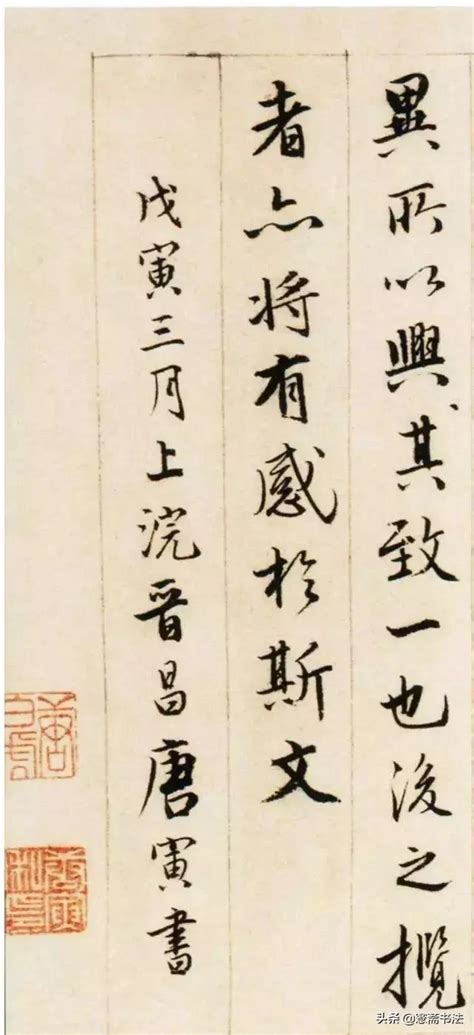 異所以興其致一也後之攬
者亦将有感於斯文
戊寅三月上浣晉昌唐寅書
头条@愙斋书法